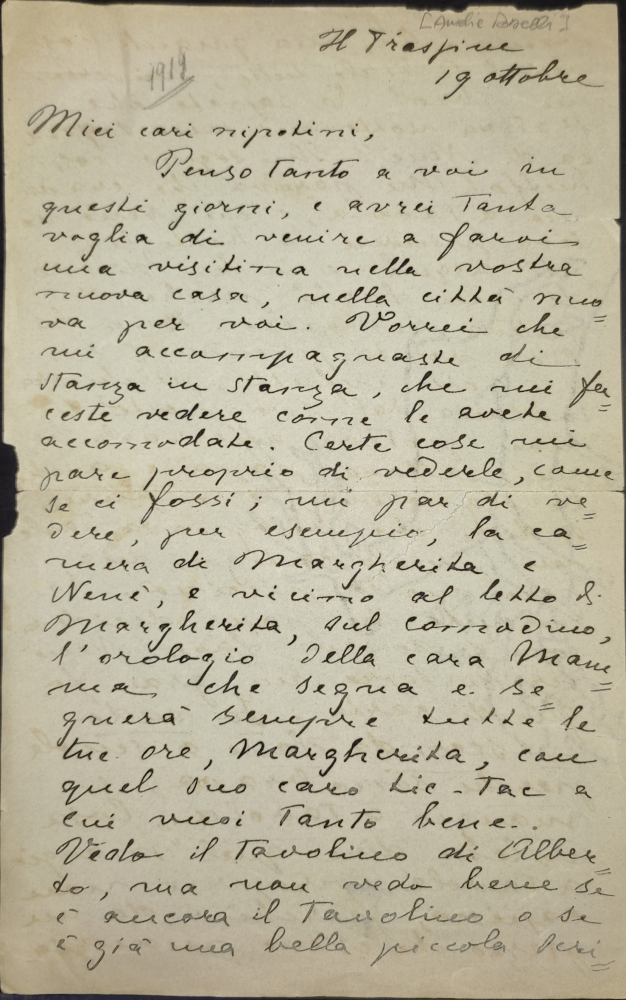 [Amelie Rosselli]
Il Frassine
19 ottobre
1919
Miei cari nipotini,
Penso tanto a voi in
questi giorni, e avrei tanta
voglia di venire a farvi
una visitina nella vostra
nuova casa, nella città nuo=
va per voi. Vorrei che
mi accompagnaste di
stanza in stanza, che mi fa=
ceste vedere come le avete
accomodate. Certe cose mi
pare proprio di vederle, come
se ci fossi; mi par di ve=
dere, per esempio, la ca=
mera di Margherita e
Nenè, e vicino al letto di
Margherita, sul comodino,
l'orologio della cara Mam=
ma che segna e se=
gnerà sempre tutte le
tue ore, Margherita, con
quel suo caro tic-tac a
cui vuoi tanto bene.
Vedo il tavolino di Alber=
to, ma non vedo bene se
è ancora il tavolino o se
è già una bella piccola scri=